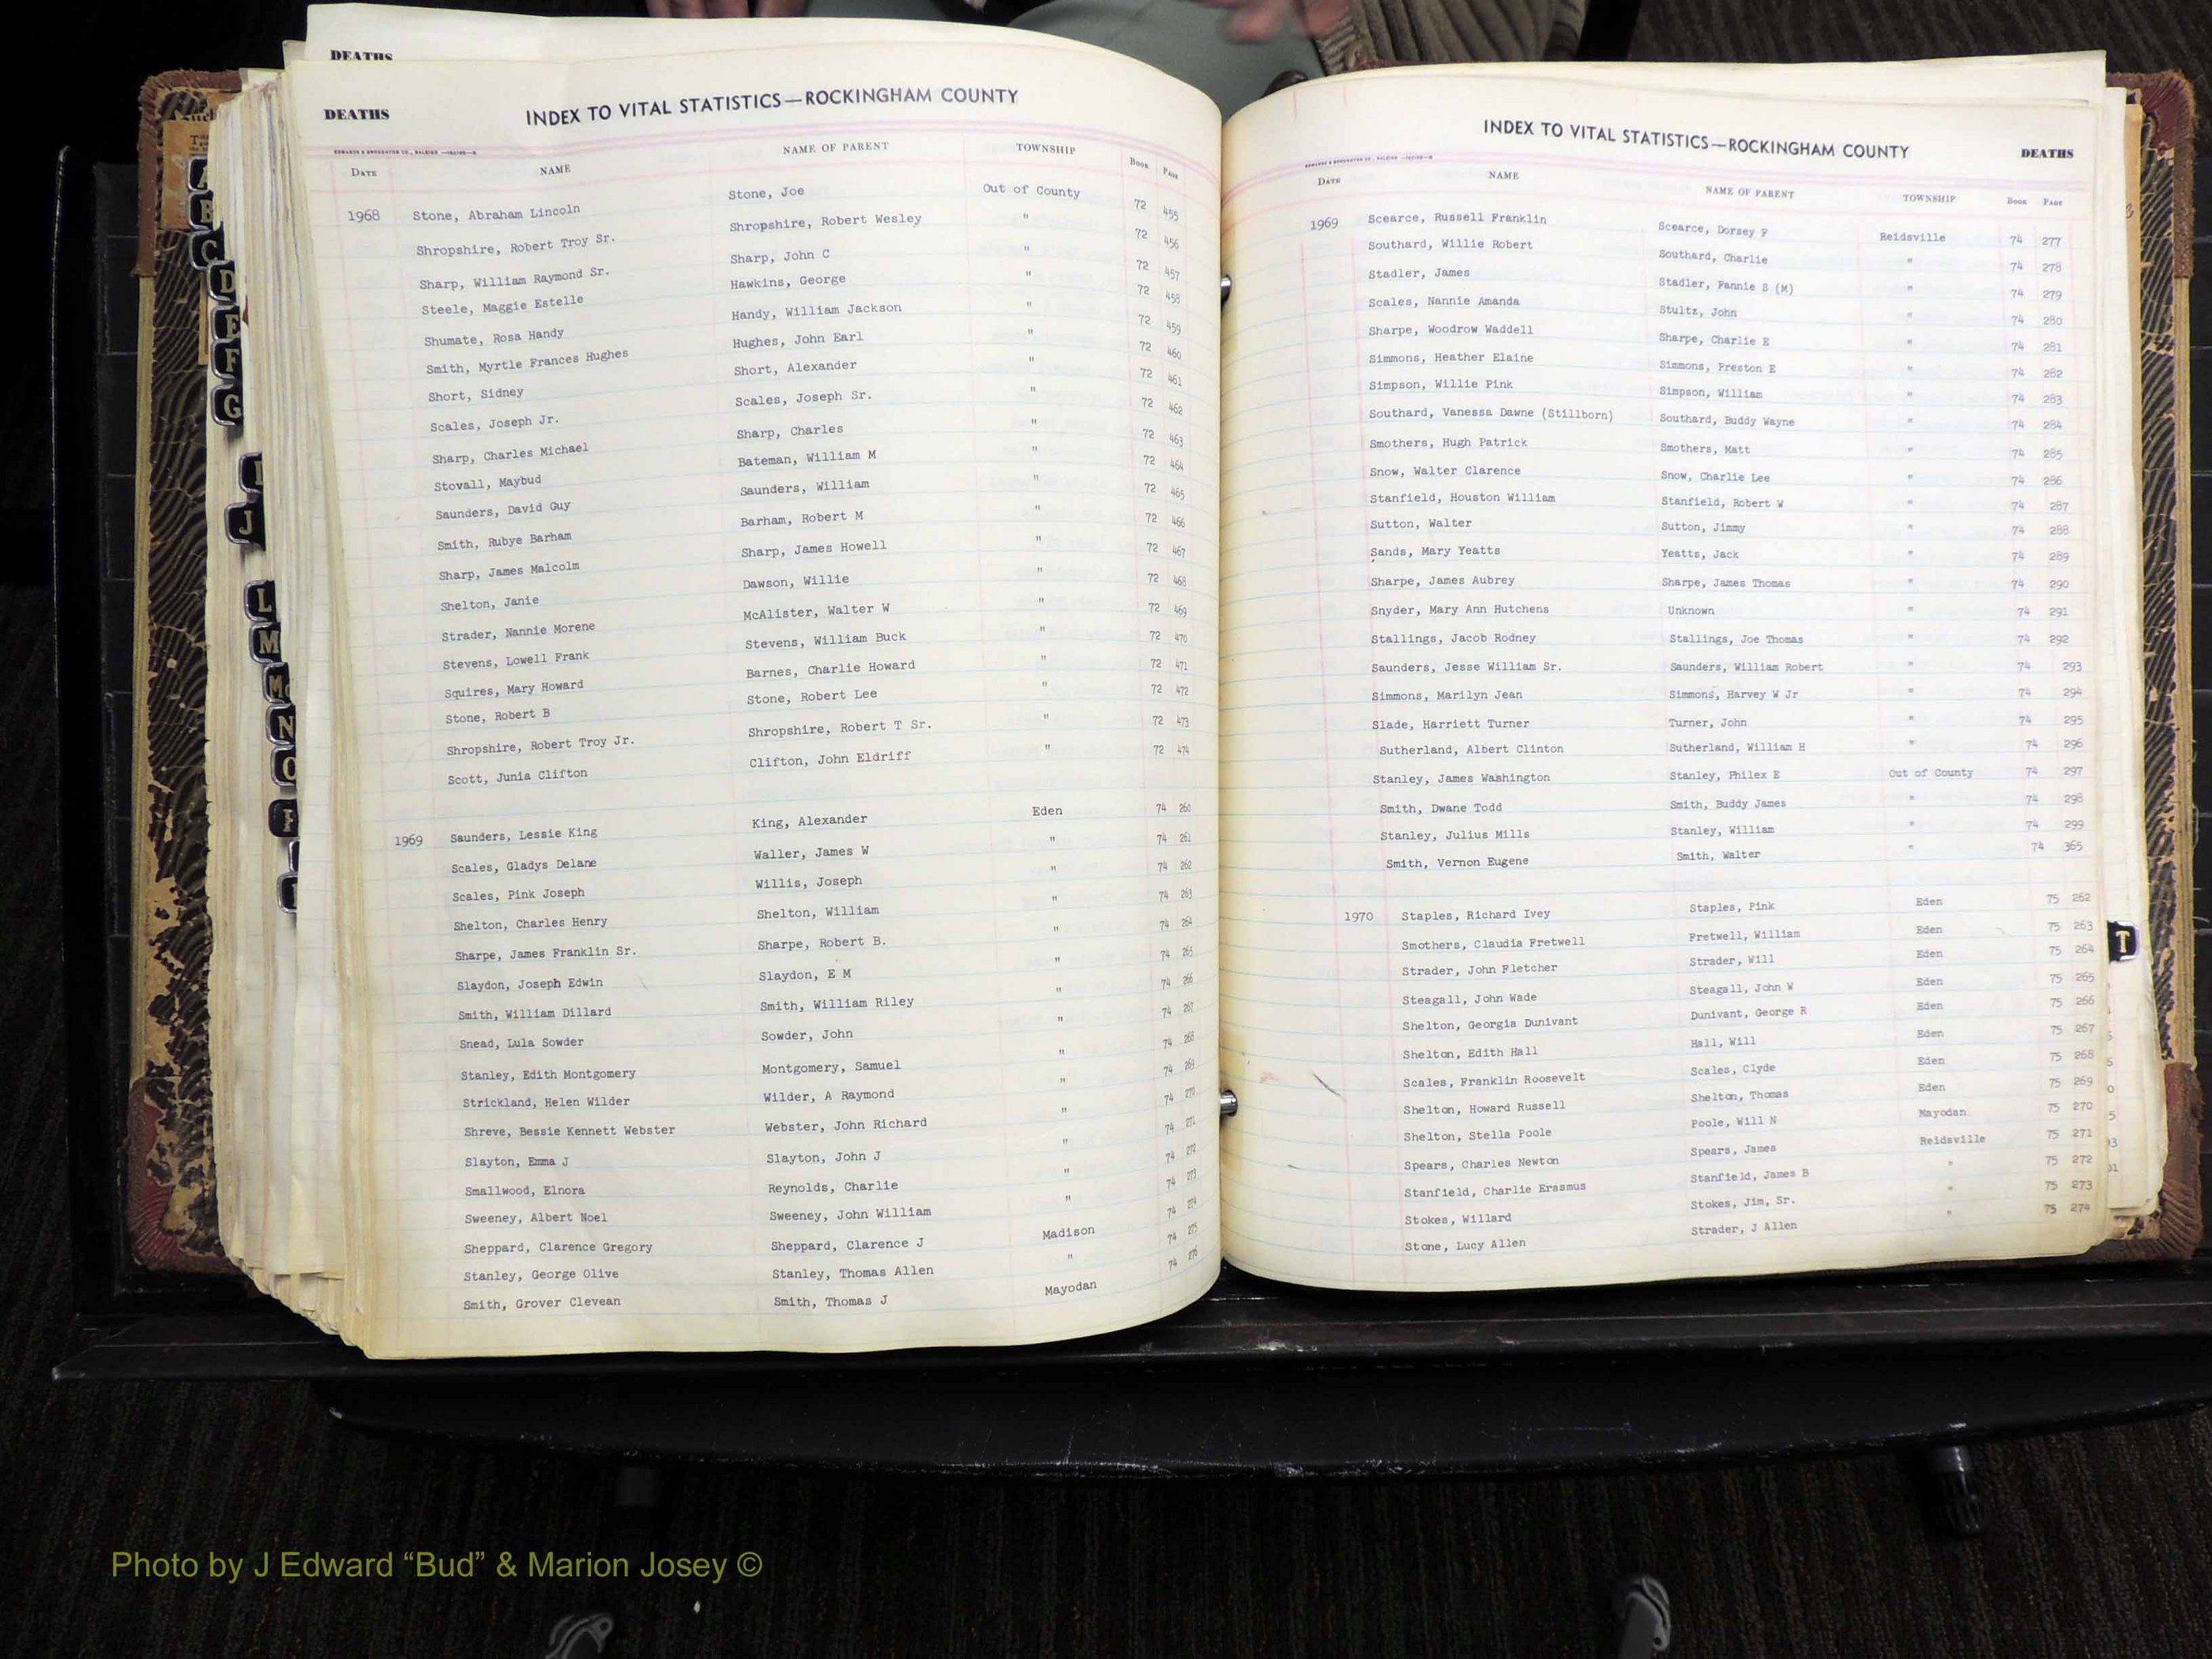 DEATHS
DEATHS INDEX TO VITAL STATISTICS—ROCKINGHAM COUNTY
DATE NAME NAME OF PARENT TOWNSHIP BOOK PAGE
1968 Stone, Abraham Lincoln Stone, Joe Out of County 72 455
Shropshire, Robert Troy Sr. Shropshire, Robert Wesley " 72 456
Sharp, William Raymond Sr. Sharp, John C " 72 457
Steele, Maggie Estelle Hawkins, George " 72 458
Shumate, Rosa Handy Handy, William Jackson " 72 459
Smith, Myrtle Frances Hughes Hughes, John Earl " 72 460
Short, Sidney Short, Alexander " 72 461
Scales, Joseph Jr. Scales, Joseph Sr. " 72 462
Sharp, Charles Michael Sharp, Charles " 72 463
Stovall, Maybud Bateman, William M " 72 464
Saunders, David Guy Saunders, William " 72 465
Smith, Rubye Barham Barham, Robert M " 72 466
Sharp, James Malcolm Sharp, James Howell " 72 467
Shelton, Janie Dawson, Willie " 72 468
Strader, Nannie Morene McAlister, Walter W " 72 469
Stevens, Lowell Frank Stevens, William Buck " 72 470
Squires, Mary Howard Barnes, Charlie Howard " 72 471
Stone, Robert B Stone, Robert Lee " 72 472
Shropshire, Robert Troy Jr. Shropshire, Robert T Sr. " 72 473
Scott, Junia Clifton Clifton, John Eldriff " 72 474
1969 Saunders, Lessie King King, Alexander Eden 74 260
Scales, Gladys Delane Waller, James W " 74 261
Scales, Pink Joseph Willis, Joseph " 74 262
Shelton, Charles Henry Shelton, William " 74 263
Sharpe, James Franklin Sr. Sharpe, Robert B. " 74 264
Slaydon, Joseph Edwin Slaydon, E M " 74 265
Smith, William Dillard Smith, William Riley " 74 266
Snead, Lula Sowder Sowder, John " 74 267
Stanley, Edith Montgomery Montgomery, Samuel " 74 268
Strickland, Helen Wilder Wilder, A Raymond " 74 269
Shreve, Bessie Kennett Webster Webster, John Richard " 74 270
Slayton, Emma J Slayton, John J " 74 271
Smallwood, Elnora Reynolds, Charlie " 74 272
Sweeney, Albert Noel Sweeney, John William " 74 273
Sheppard, Clarence Gregory Sheppard, Clarence J Madison 74 274
Stanley, George Olive Stanley, Thomas Allen " 74 275
Smith, Grover Clevean Smith, Thomas J Mayodan 74 276
INDEX TO VITAL STATISTICS—ROCKINGHAM COUNTY DEATHS
DATE NAME NAME OF PARENT TOWNSHIP BOOK PAGE
1969 Scearce, Russell Franklin Scearce, Dorsey F Reidsville 74 277
Southard, Willie Robert Southard, Charlie " 74 278
Stadler, James Stadler, Fannie S (M) " 74 279
Scales, Nannie Amanda Stultz, John " 74 280
Sharpe, Woodrow Waddell Sharpe, Charlie E " 74 281
Simmons, Heather Elaine Simmons, Preston E " 74 282
Simpson, Willie Pink Simpson, William " 74 283
Southard, Vanessa Dawne (Stillborn) Southard, Buddy Wayne " 74 284
Smothers, Hugh Patrick Smothers, Matt " 74 285
Snow, Walter Clarence Snow, Charlie Lee " 74 286
Stanfield, Houston William Stanfield, Robert W " 74 287
Sutton, Walter Sutton, Jimmy " 74 288
Sands, Mary Yeatts Yeatts, Jack " 74 289
Sharpe, James Aubrey Sharpe, James Thomas " 74 290
Snyder, Mary Ann Hutchens Unknown " 74 291
Stallings, Jacob Rodney Stallings, Joe Thomas " 74 292
Saunders, Jesse William Sr. Saunders, William Robert " 74 293
Simmons, Marilyn Jean Simmons, Harvey W Jr " 74 294
Slade, Harriett Turner Turner, John " 74 295
Sutherland, Albert Clinton Sutherland, William H " 74 296
Stanley, James Washington Stanley, Philex E Out of County 74 297
Smith, Dwane Todd Smith, Buddy James " 74 298
Stanley, Julius Mills Stanley, William " 74 299
Smith, Vernon Eugene Smith, Walter " 74 365
1970 Staples, Richard Ivey Staples, Pink Eden 75 262
Smothers, Claudia Fretwell Fretwell, William Eden 75 263
Strader, John Fletcher Strader, Will Eden 75 264
Steagall, John Wade Steagall, John W Eden 75 265
Shelton, Georgia Dunivant Dunivant, George R Eden 75 266
Shelton, Edith Hall Hall, Will Eden 75 267
Scales, Franklin Roosevelt Scales, Clyde Eden 75 268
Shelton, Howard Russell Shelton, Thomas Eden 75 269
Shelton, Stella Poole Poole, Will N Mayodan 75 270
Spears, Charles Newton Spears, James Reidsville 75 271
Stanfield, Charlie Erasmus Stanfield, James B " 75 272
Stokes, Willard Stokes, Jim, Sr. " 75 273
Stone, Lucy Allen Strader, J Allen " 75 274
A
B
C
D
E
F
G
I
J
L
M
Mc
N
O
T
Photo by J Edward “Bud” & Marion Josey ©